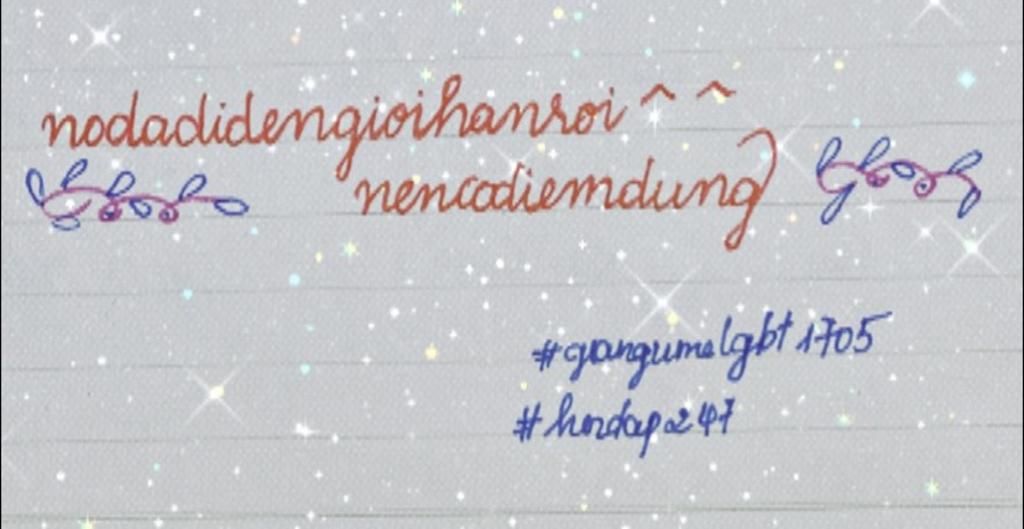 nodadidengioihanroi ^ ^
nencodiemdung
#giangumelgbt1705
#hindap247